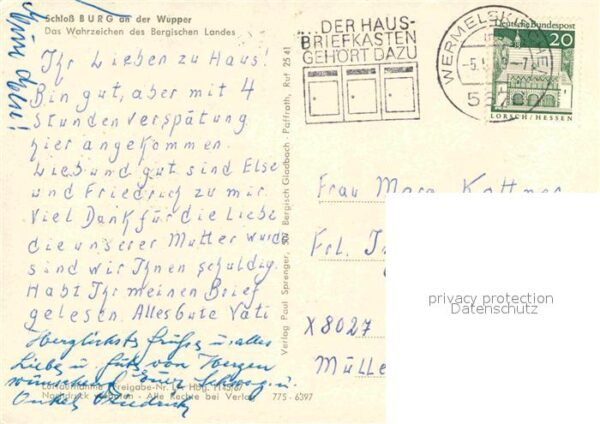 Schloß BURG an der Wupper
Das Wahrzeichen des Bergischen Landes
Ihr Lieben zu Haus!
Bin gut, aber mit 4
Stunden Verspätung
hier angekommen.
Lieb und gut sind Else
und Friedrich zu mir.
Viel Dank für die Liebe
die unserer Mutter wurd
sind wir Ihnen schuldig.
Habt Ihr meinen Brief
gelesen. Alles Gute Vati
Herzlichste Grüße u. alles
Liebe u. Gute von Herzen
wünschen Euer u.
Onkel Friedrich
Nachdruck verboten - Alle Rechte bei Verlag
775 - 6397
Verlag Paul Sprenger, Bergisch Gladbach - Paffrath, Ruf 25 41
...DER HAUS-
BRIEFKASTEN
GEHÖRT DAZU
WERMELSKIRCHE
Deutsche Bundespost
20
LORSCH/HESSEN
Frau
Frl.
X8027
privacy protection
Datenschutz